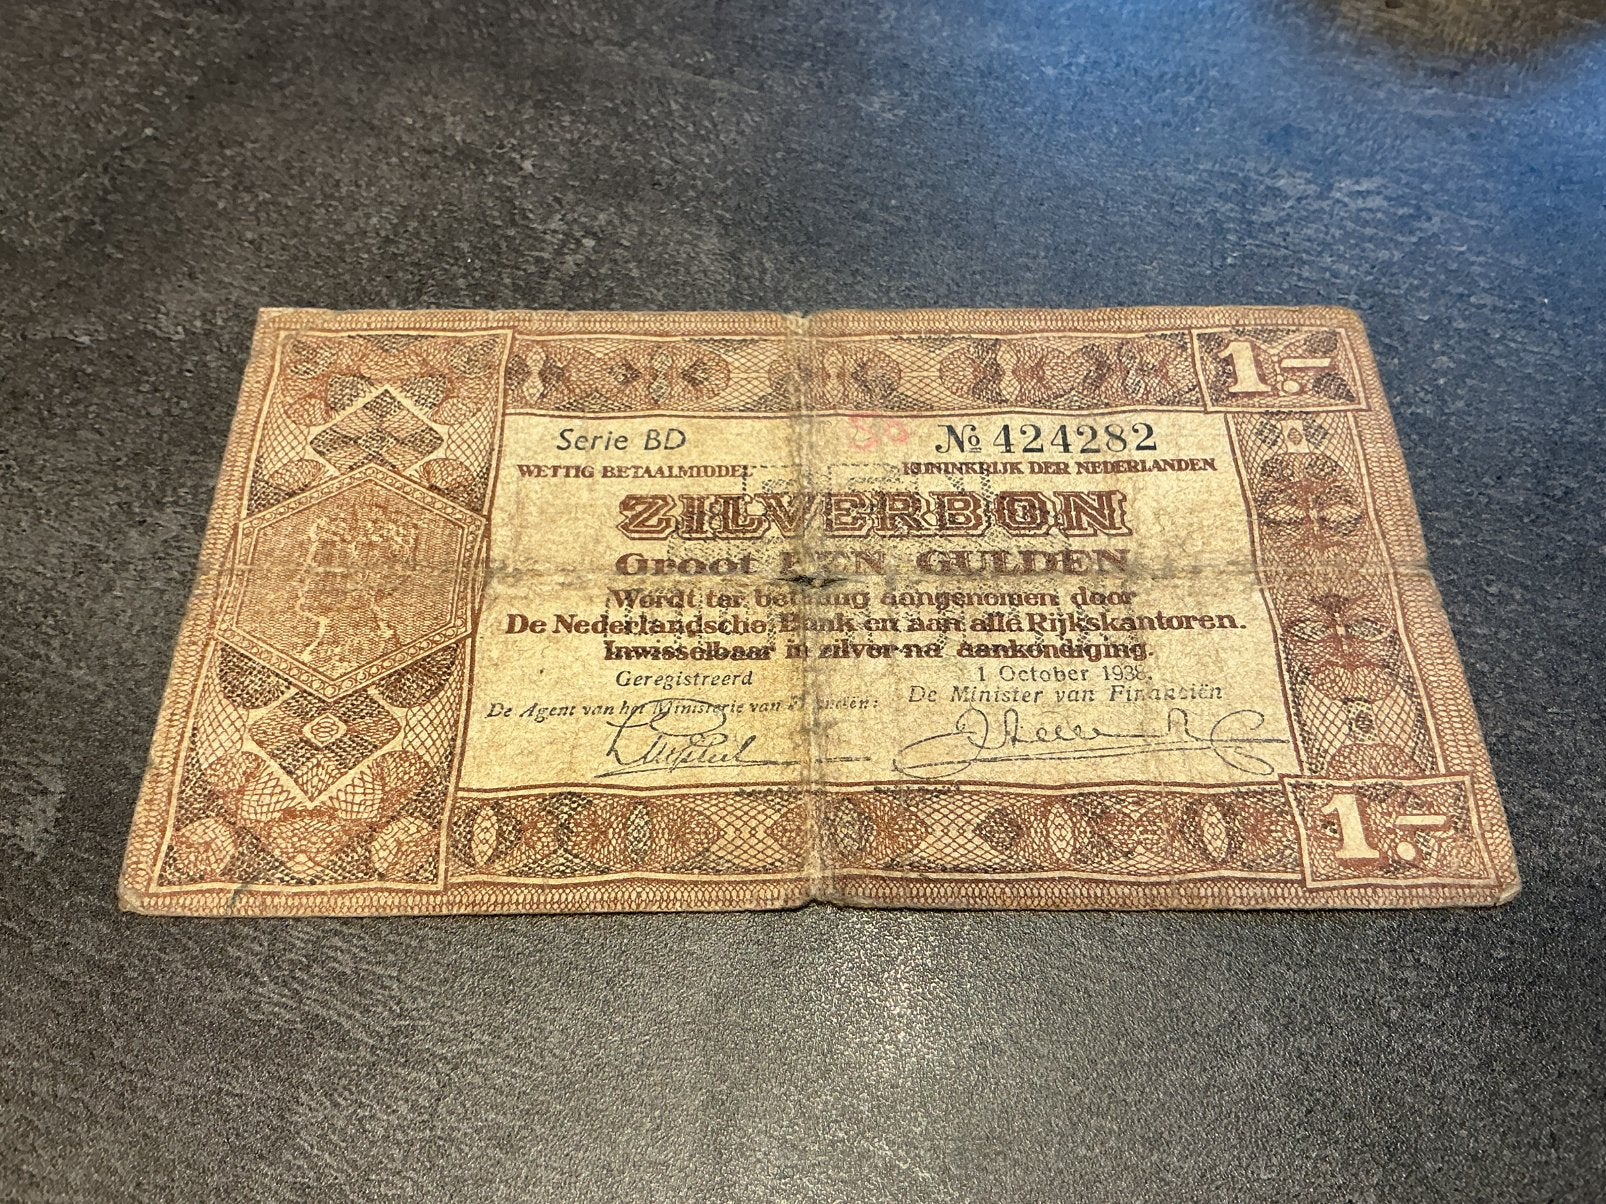 1.-
Serie BD
50
№ 424282
WETTIG BETAALMIDDEL
KONINKRIJK DER NEDERLANDEN
ZILVERBON
Groot EEN GULDEN
Wordt ter betaling aangenomen door
De Nederlandsche Bank en aan alle Rijkskantoren.
Inwisselbaar in zilver na aankondiging.
Geregistreerd
1 October 1938.
De Agent van het Ministerie van Financiën:
De Minister van Financiën
1.-